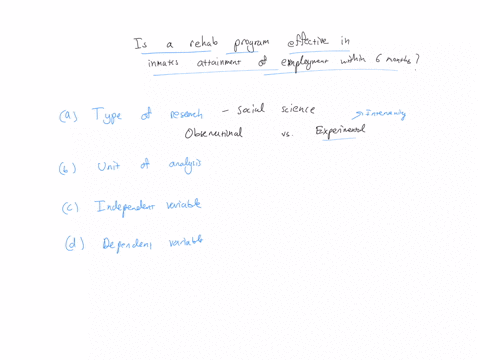 Is a rehab program effective in
inmates attainment of employment within 6 months?
(a) Type of research - social science
Observational vs. Experimental
(b) Unit of analysis
(c) Independent variable
(d) Dependent variable